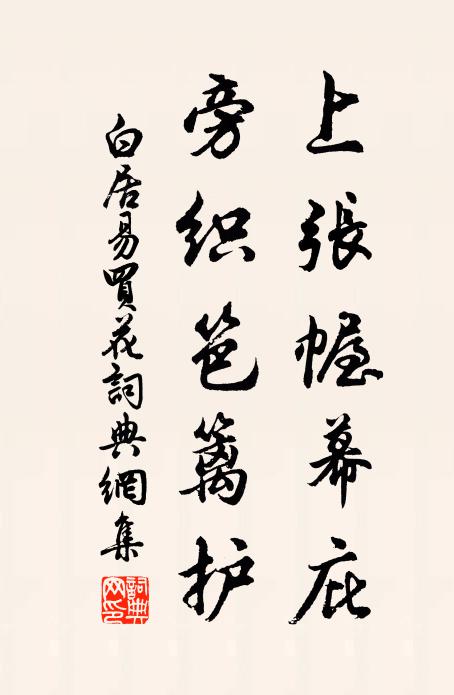 上張幄幕庇
旁织笆籬护
白居易買花詞典網集
詞典网印